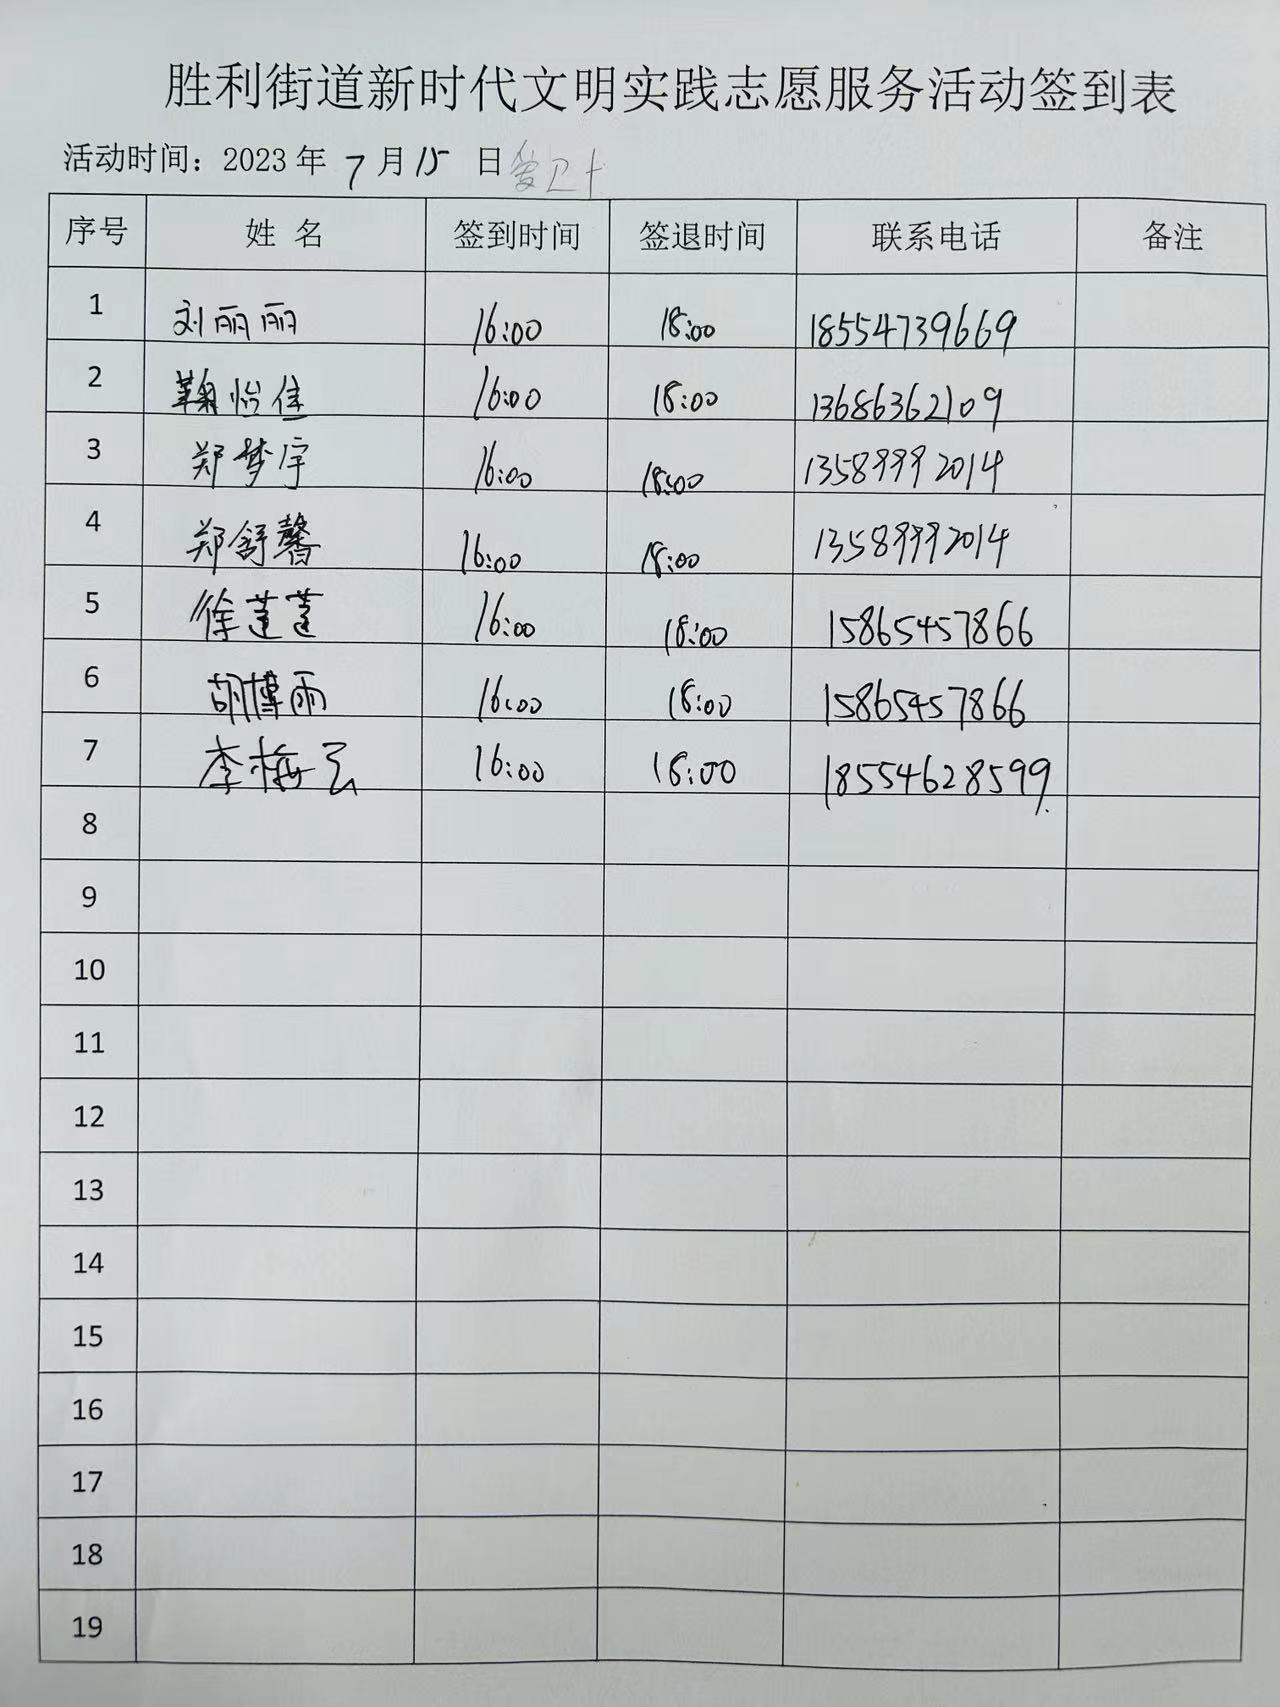 胜利街道新时代文明实践志愿服务活动签到表
活动时间：2023 年 7 月 15 日 爱卫
序号 姓 名 签到时间 签退时间 联系电话 备注
1 刘丽丽 16:00 18:00 18554739669
2 鞠怡佳 16:00 18:00 13686362109
3 郑梦宇 16:00 18:00 13589992014
4 郑舒馨 16:00 18:00 13589992014
5 徐莲莲 16:00 18:00 15865457866
6 胡博雨 16:00 18:00 15865457866
7 李梅云 16:00 18:00 18554628599
8
9
10
11
12
13
14
15
16
17
18
19